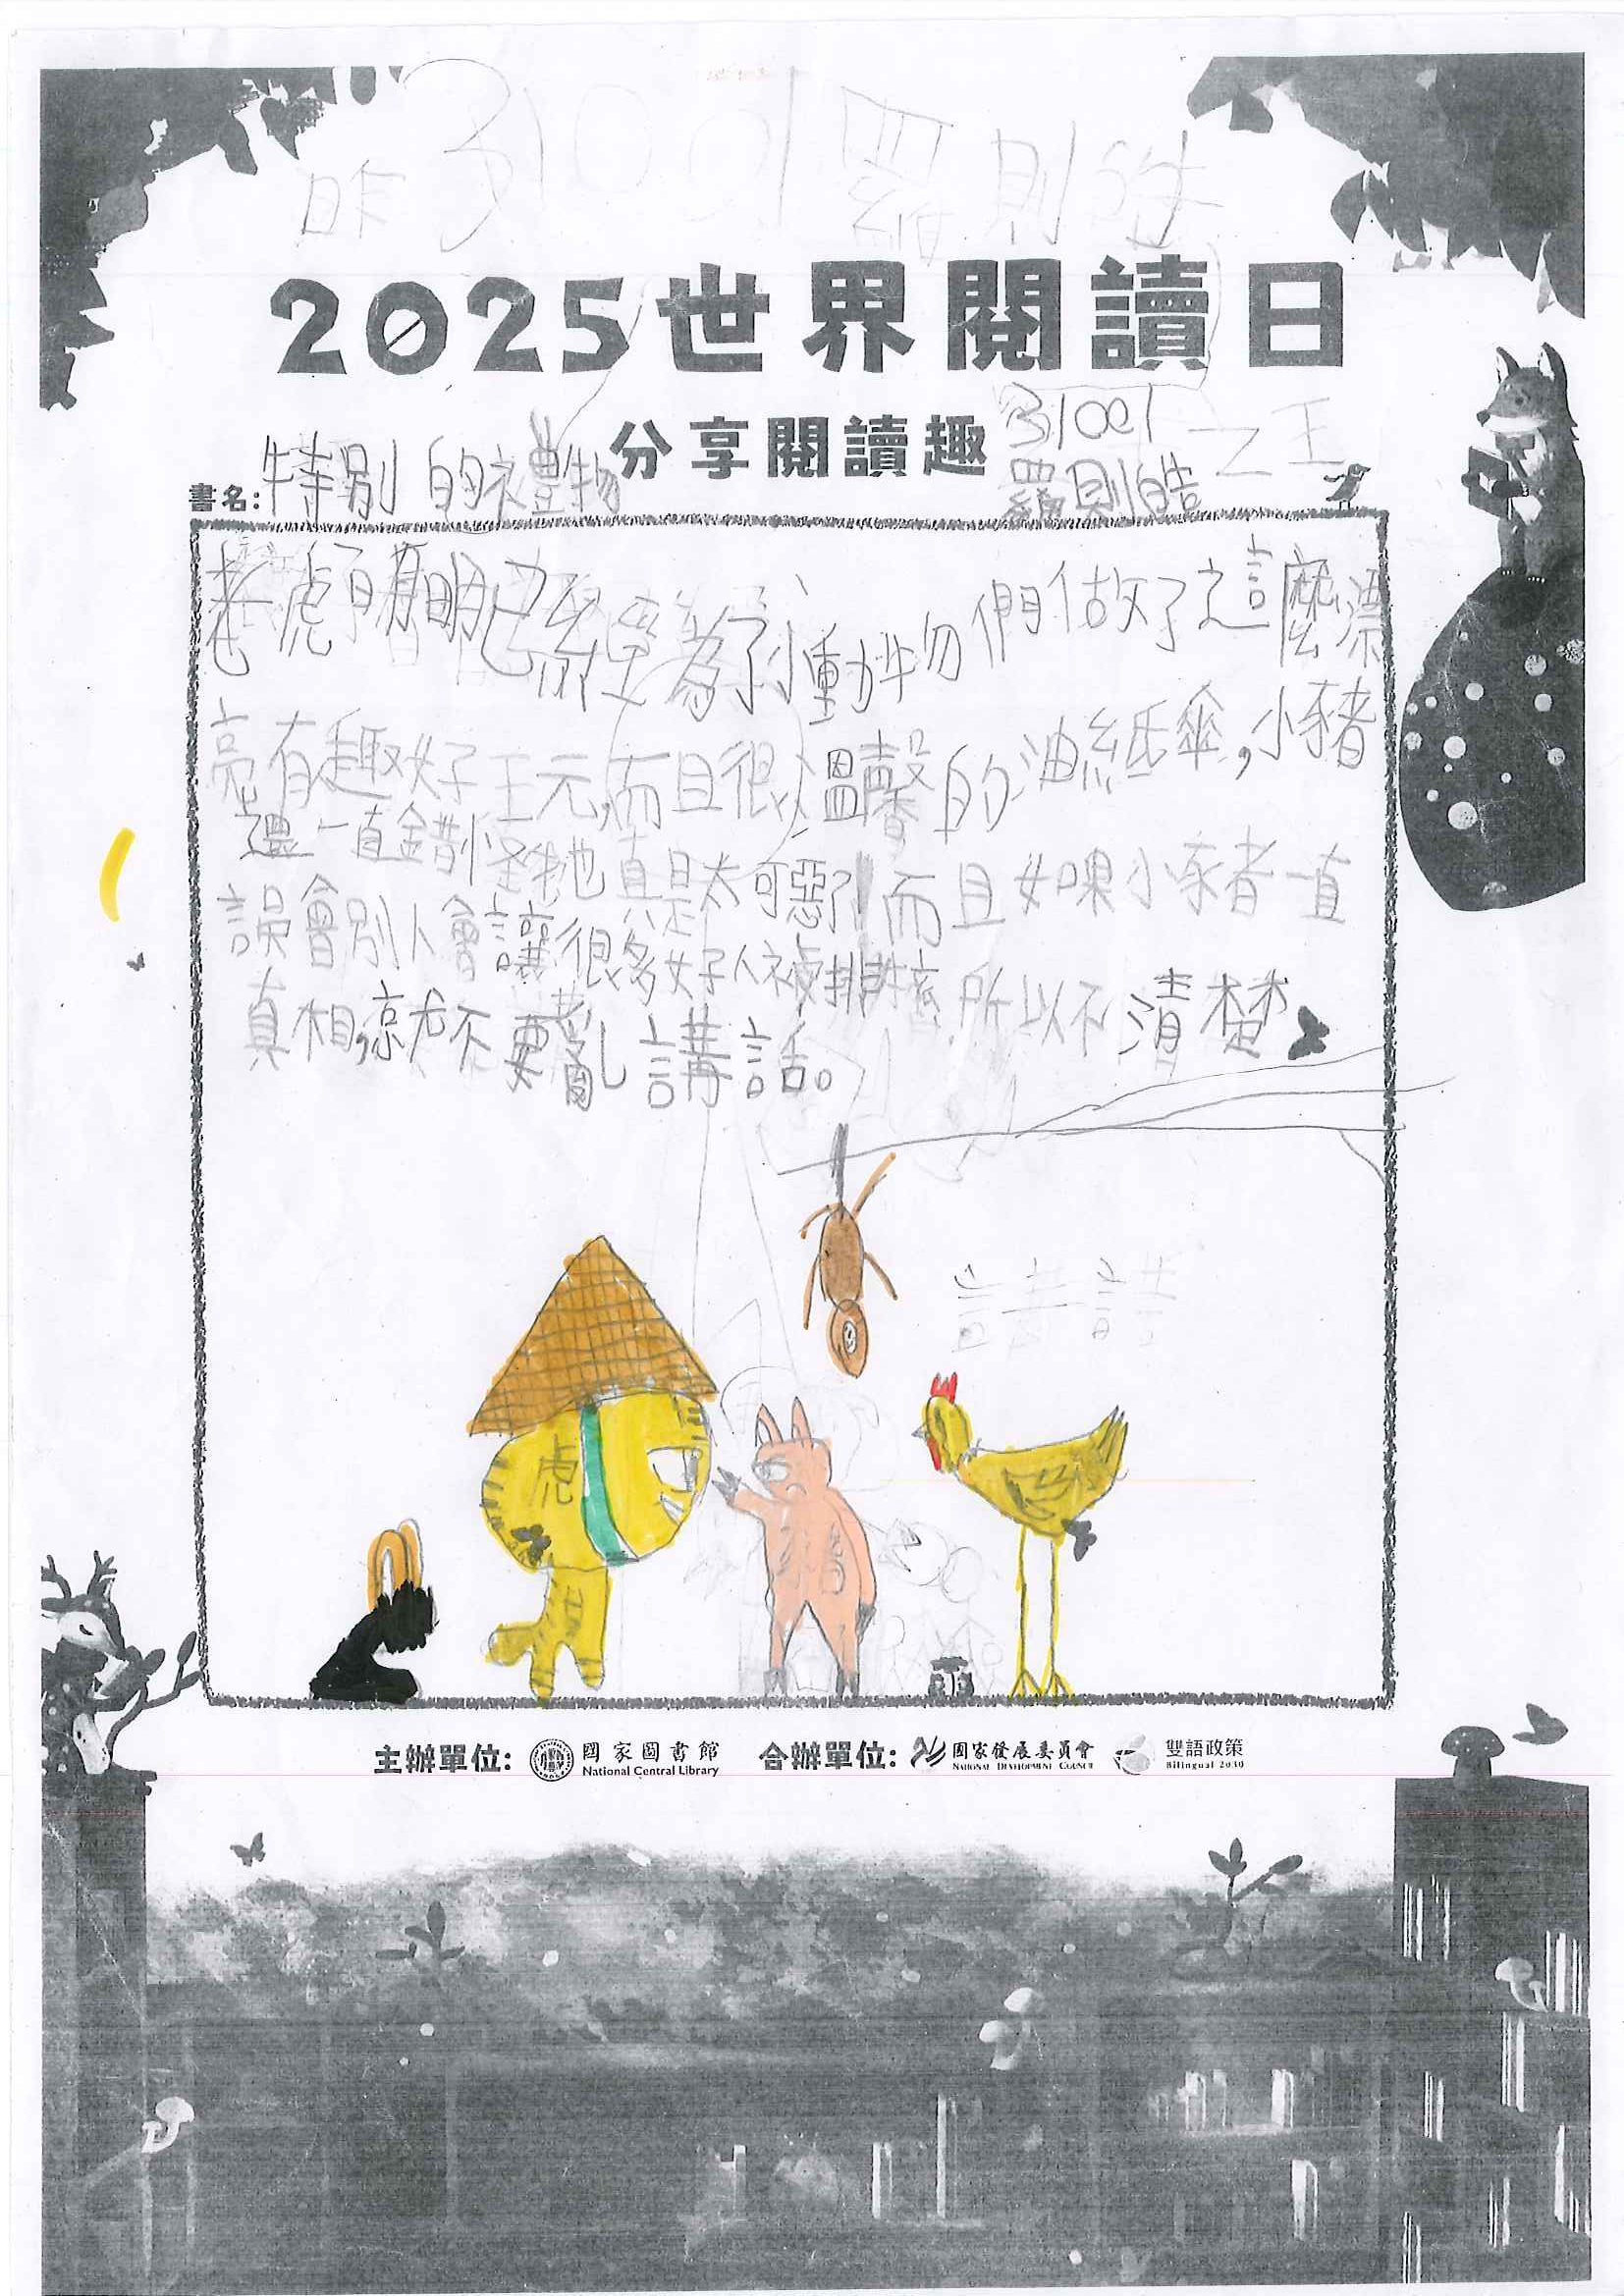 31001 羅則
2025世界閱讀日
分享閱讀趣
31001 之王
羅則皓
書名:特別的禮物
老虎須明已經為了小動物們做了這麼漂
亮有趣好玩,而且很溫馨的油紙傘,小豬
還一直錯怪牠真是太可惡了!而且如果小豬一直
誤會別人會讓很多好人被排擠,所以不清楚
真相,就不要亂講話。
講講
虎
主辦單位: 國家圖書館 National Central Library 合辦單位: 國家發展委員會 NATIONAL DEVELOPMENT COUNCIL 雙語政策 Bilingual 2030